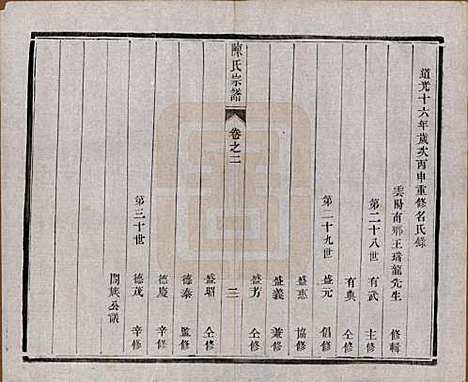 道光十六年歲次丙申重修名氏錄
雲陽南鄉王瑞龍先生 修輯
第二十八世 有武 主修
有典 仝修
第二十九世 盛元 倡修
盛惠 協修
盛義 兼修
盛芳 仝修
陳氏宗譜 卷之二 三
盛昭 仝修
德泰 監修
德慶 仝修
第三十世 德茂 幸修
闔族公議